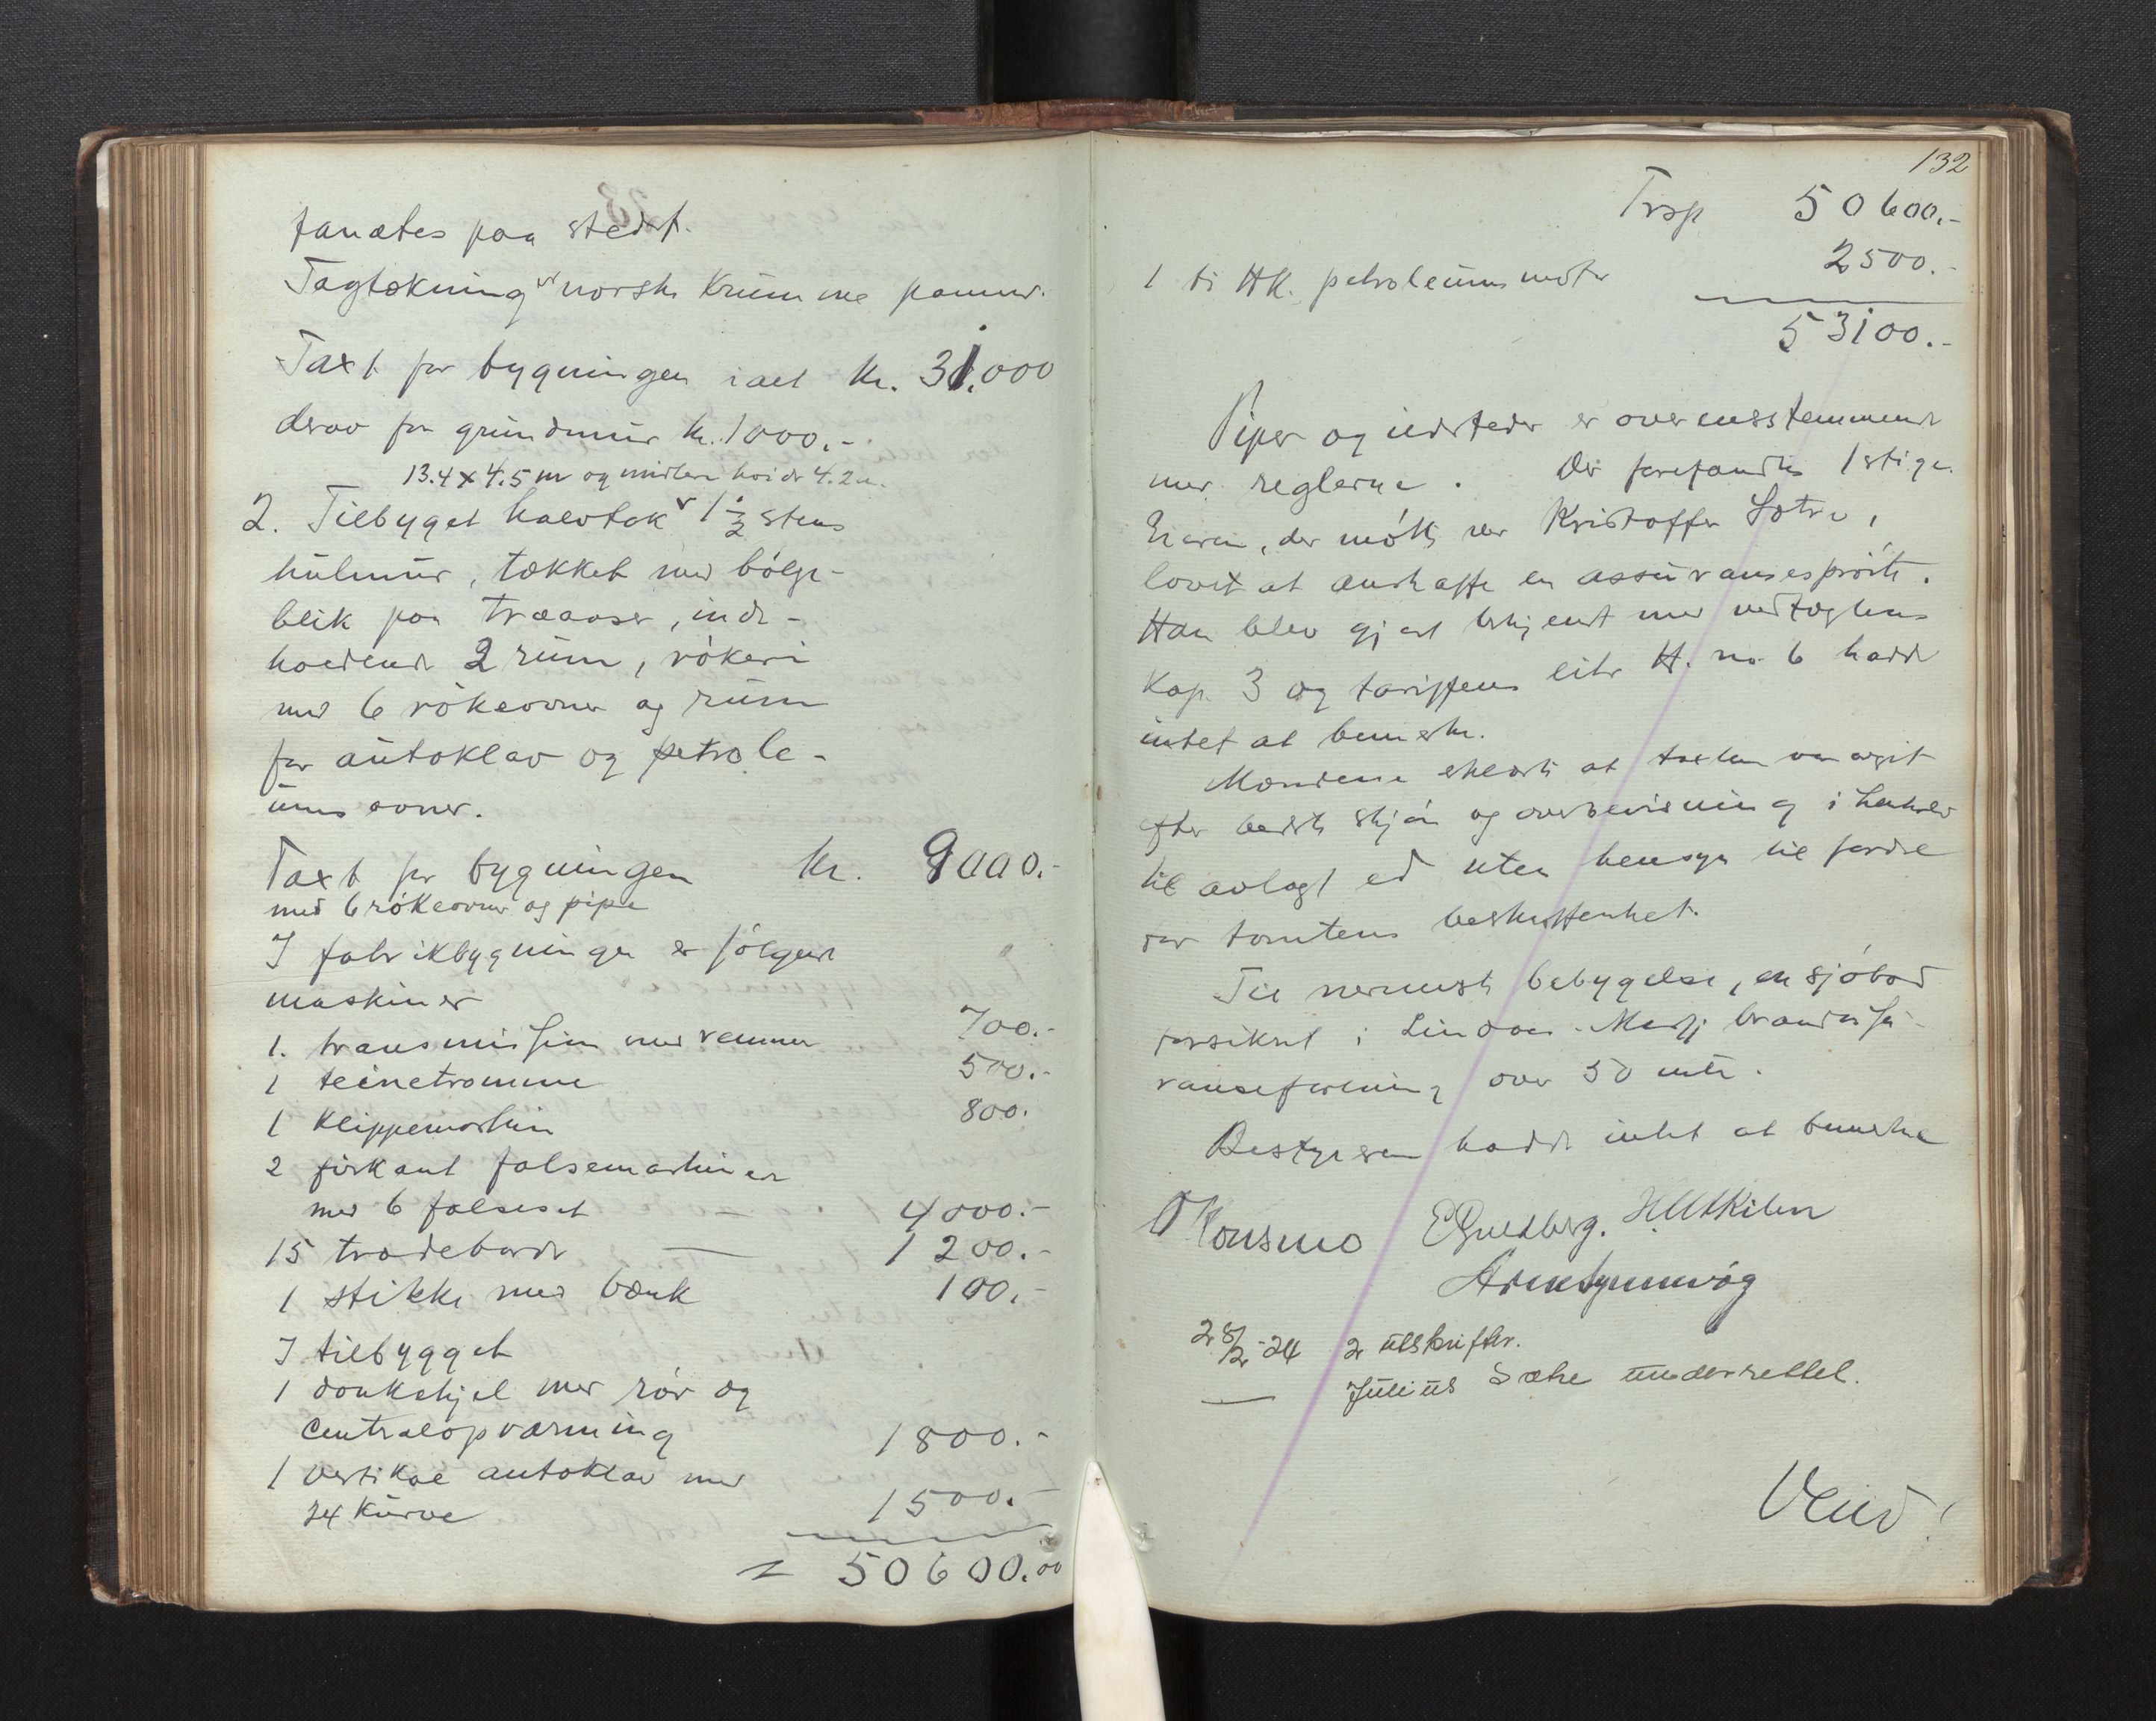 fandtes paa stedet.
Tagtækning norske krumme panner.
Taxt for bygningen ialt kr. 31.000
derav for grundmur kr. 1000.-
13.4 x 4.5 m og midlere høide 4.2 m.
2. Tilbygget halvtak 1 1/2 stens
hulmur, tækket med bølge-
blik paa træaaser, inde-
holdende 2 rum, røkeri
med 6 røkeovner og rum
for autoklav og petrole-
ums ovner.
Taxt for bygningen kr. 9000.-
med 6 røkeovner og pipe
I fabrikbygningen er følgende
maskiner
1. transmission med remmer 700.-
1 teinetromme 500.-
1 klippemaskin 800.-
2 firkant falsemaskiner
med 6 falsesæt — 4000.-
15 trædebord — 1200.-
1 stikke med bænk 100.-
I tilbygget
1 donkekjel med rør og
centralopvarming 1800.-
1 vertikal autoklav med
kurve 1500.-
50600.00
132
Trsp 50600.-
1 ti HK. petroleumsmotor 2500.-
53100.-
Piper og ildsteder er overensstemmende
med reglerne. Der forefandtes 1 stige.
Eieren, der møtte ved Kristoffer Sætre,
lovet at anskaffe en assuransesprøite.
Han blev gjort bekjent med vedtægtens
Kap. 3 og tariffens litr H. no. 6 hadde
intet at bemerke.
Mændene erklærte at taxten var avgit
efter bedste skjøn og overbevisning i henhold
til avlagt ed uten hensyn til fordel
av tomtens beskaffenhet.
Til nærmeste bebyggelse, en sjøbod
forsikret i Lindaas - Masfj brandassu-
ranseforening over 50 mtr.
Bestyreren hadde intet at bemerke
O Konsmo E Guldberg. H Utkilen
28/2-24 2 utskrifter.
— Julius Sætre underrettet.
Vend!